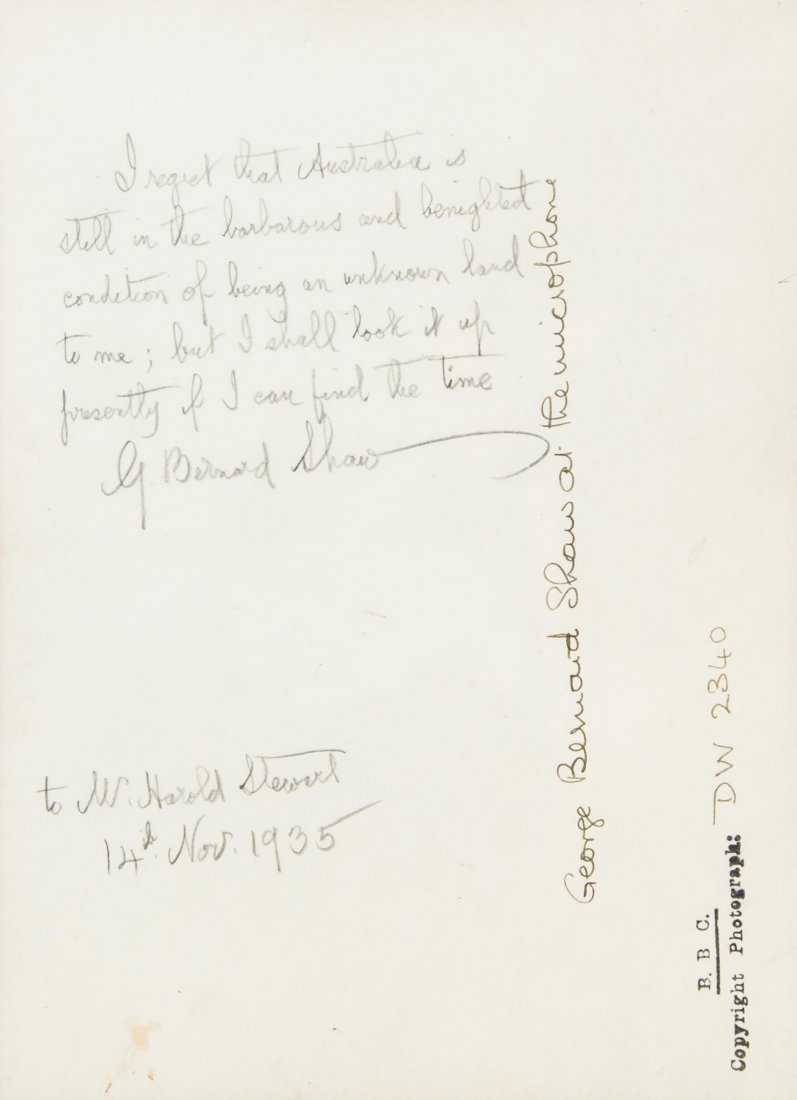 I regret that Australia is
still in the barbarous and benighted
condition of being an unknown land
to me; but I shall look it up
presently if I can find the time
G. Bernard Shaw
to Mr. Harold Stewart
14th. Nov. 1935
George Bernard Shaw at the microphone
B. B C.
Copyright Photograph: DW 2340